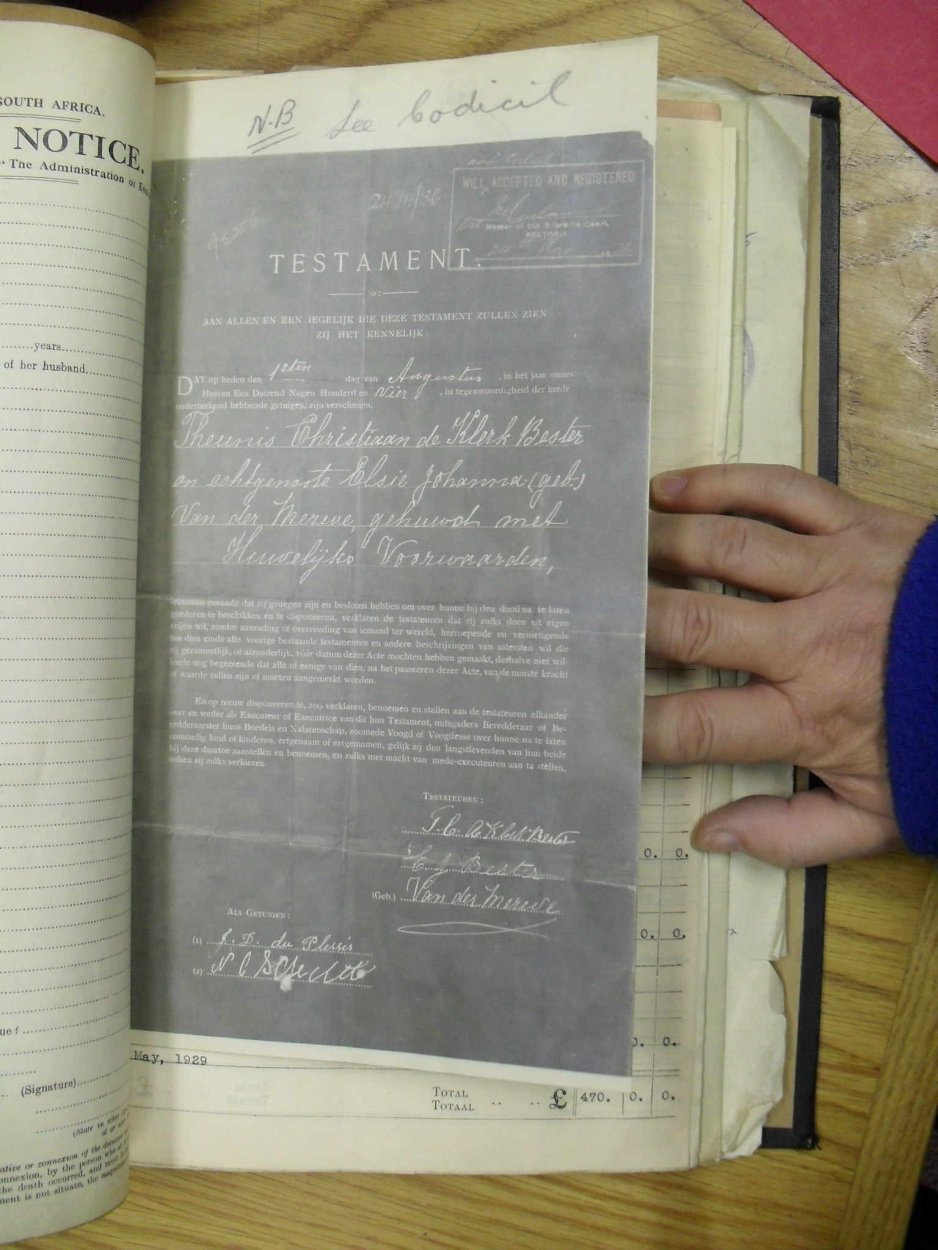 SOUTH AFRICA.
NOTICE.
The Administration of
years
of her husband
(Signature)
ative or connexion of the
onnexion, by the person who
the death occurred, and must
ment is not situate, the
N.B See Codicil
24/11/36
WILL ACCEPTED AND REGISTERED
Master of the Supreme Court,
PRETORIA
TESTAMENT.
AAN ALLEN EN EEN IEGELIJK DIE DEZE TESTAMENT ZULLEN ZIEN
ZIJ HET KENNELIJK:
DAT op heden den 1sten dag van Augustus, in het jaar onzes
Heeren Een Duizend Negen Honderd en Vier, in tegenwoordigheid der mede
onderteekend hebbende getuigen, zijn verschenen,
Theunis Christiaan de Klerk Bester
en echtgenoote Elsie Johanna (geb)
Van der Merwe, gehuwd met
Huwelijks Voorwaarden,
zij genegen zijn en besloten hebben om over hunne bij den dood na te laten
goederen te beschikken en te disponeeren, verklaren de testateuren dat zij zulks doen uit eigen
vrijen wil, zonder aanrading of overreeding van iemand ter wereld, herroepende en vernietigende
ten dien einde alle voorige bestaande testamenten en andere beschrijvingen van uitersten wil die
zij gezamentlijk, of afzonderlijk, vóór datum dezer Acte mochten hebben gemaakt, derhalve met wil-
lende nog begeerende dat alle of eenige van dien, na het passeeren dezer Acte, van de minste kracht
of waarde zullen zijn of moeten aangemerkt worden.
En op nieuw disponeerende, zoo verklaren, benoemen en stellen aan de testateuren elkander
over en weder als Executeur of Executrice van dit hun Testament, mitsgaders Beredderaar of Be-
redderaarster huns Boedels en Nalatenschap, zoomede Voogd of Voogdesse over hunne na te laten
onmondig kind of kinderen, erfgenaam of erfgenamen, gelijk zij den langstlevenden van hun beide
bij deze daartoe aanstellen en benoemen, en zulks met macht van mede-executeuren aan te stellen,
indien zij zulks verkiezen.
TESTATEUREN:
T. C. de Klerk Bester
E J Bester
(Geb.) Van der Merwe
ALS GETUIGEN:
(1) J. D. du Plessis
(2) N
0. 0.
0. 0.
0. 0.
May, 1929
TOTAL
TOTAAL £ 470. 0. 0.